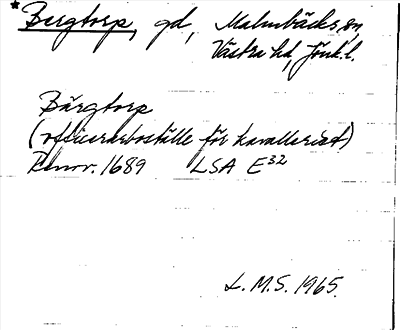 *Bergtorp, gd, Malmbäcks sn,
Västra hd, Jönk. l.
Bärgtorp
(officersboställe för kavalleriet)
Renov. 1689 LSA E³²
L.M.S. 1965.